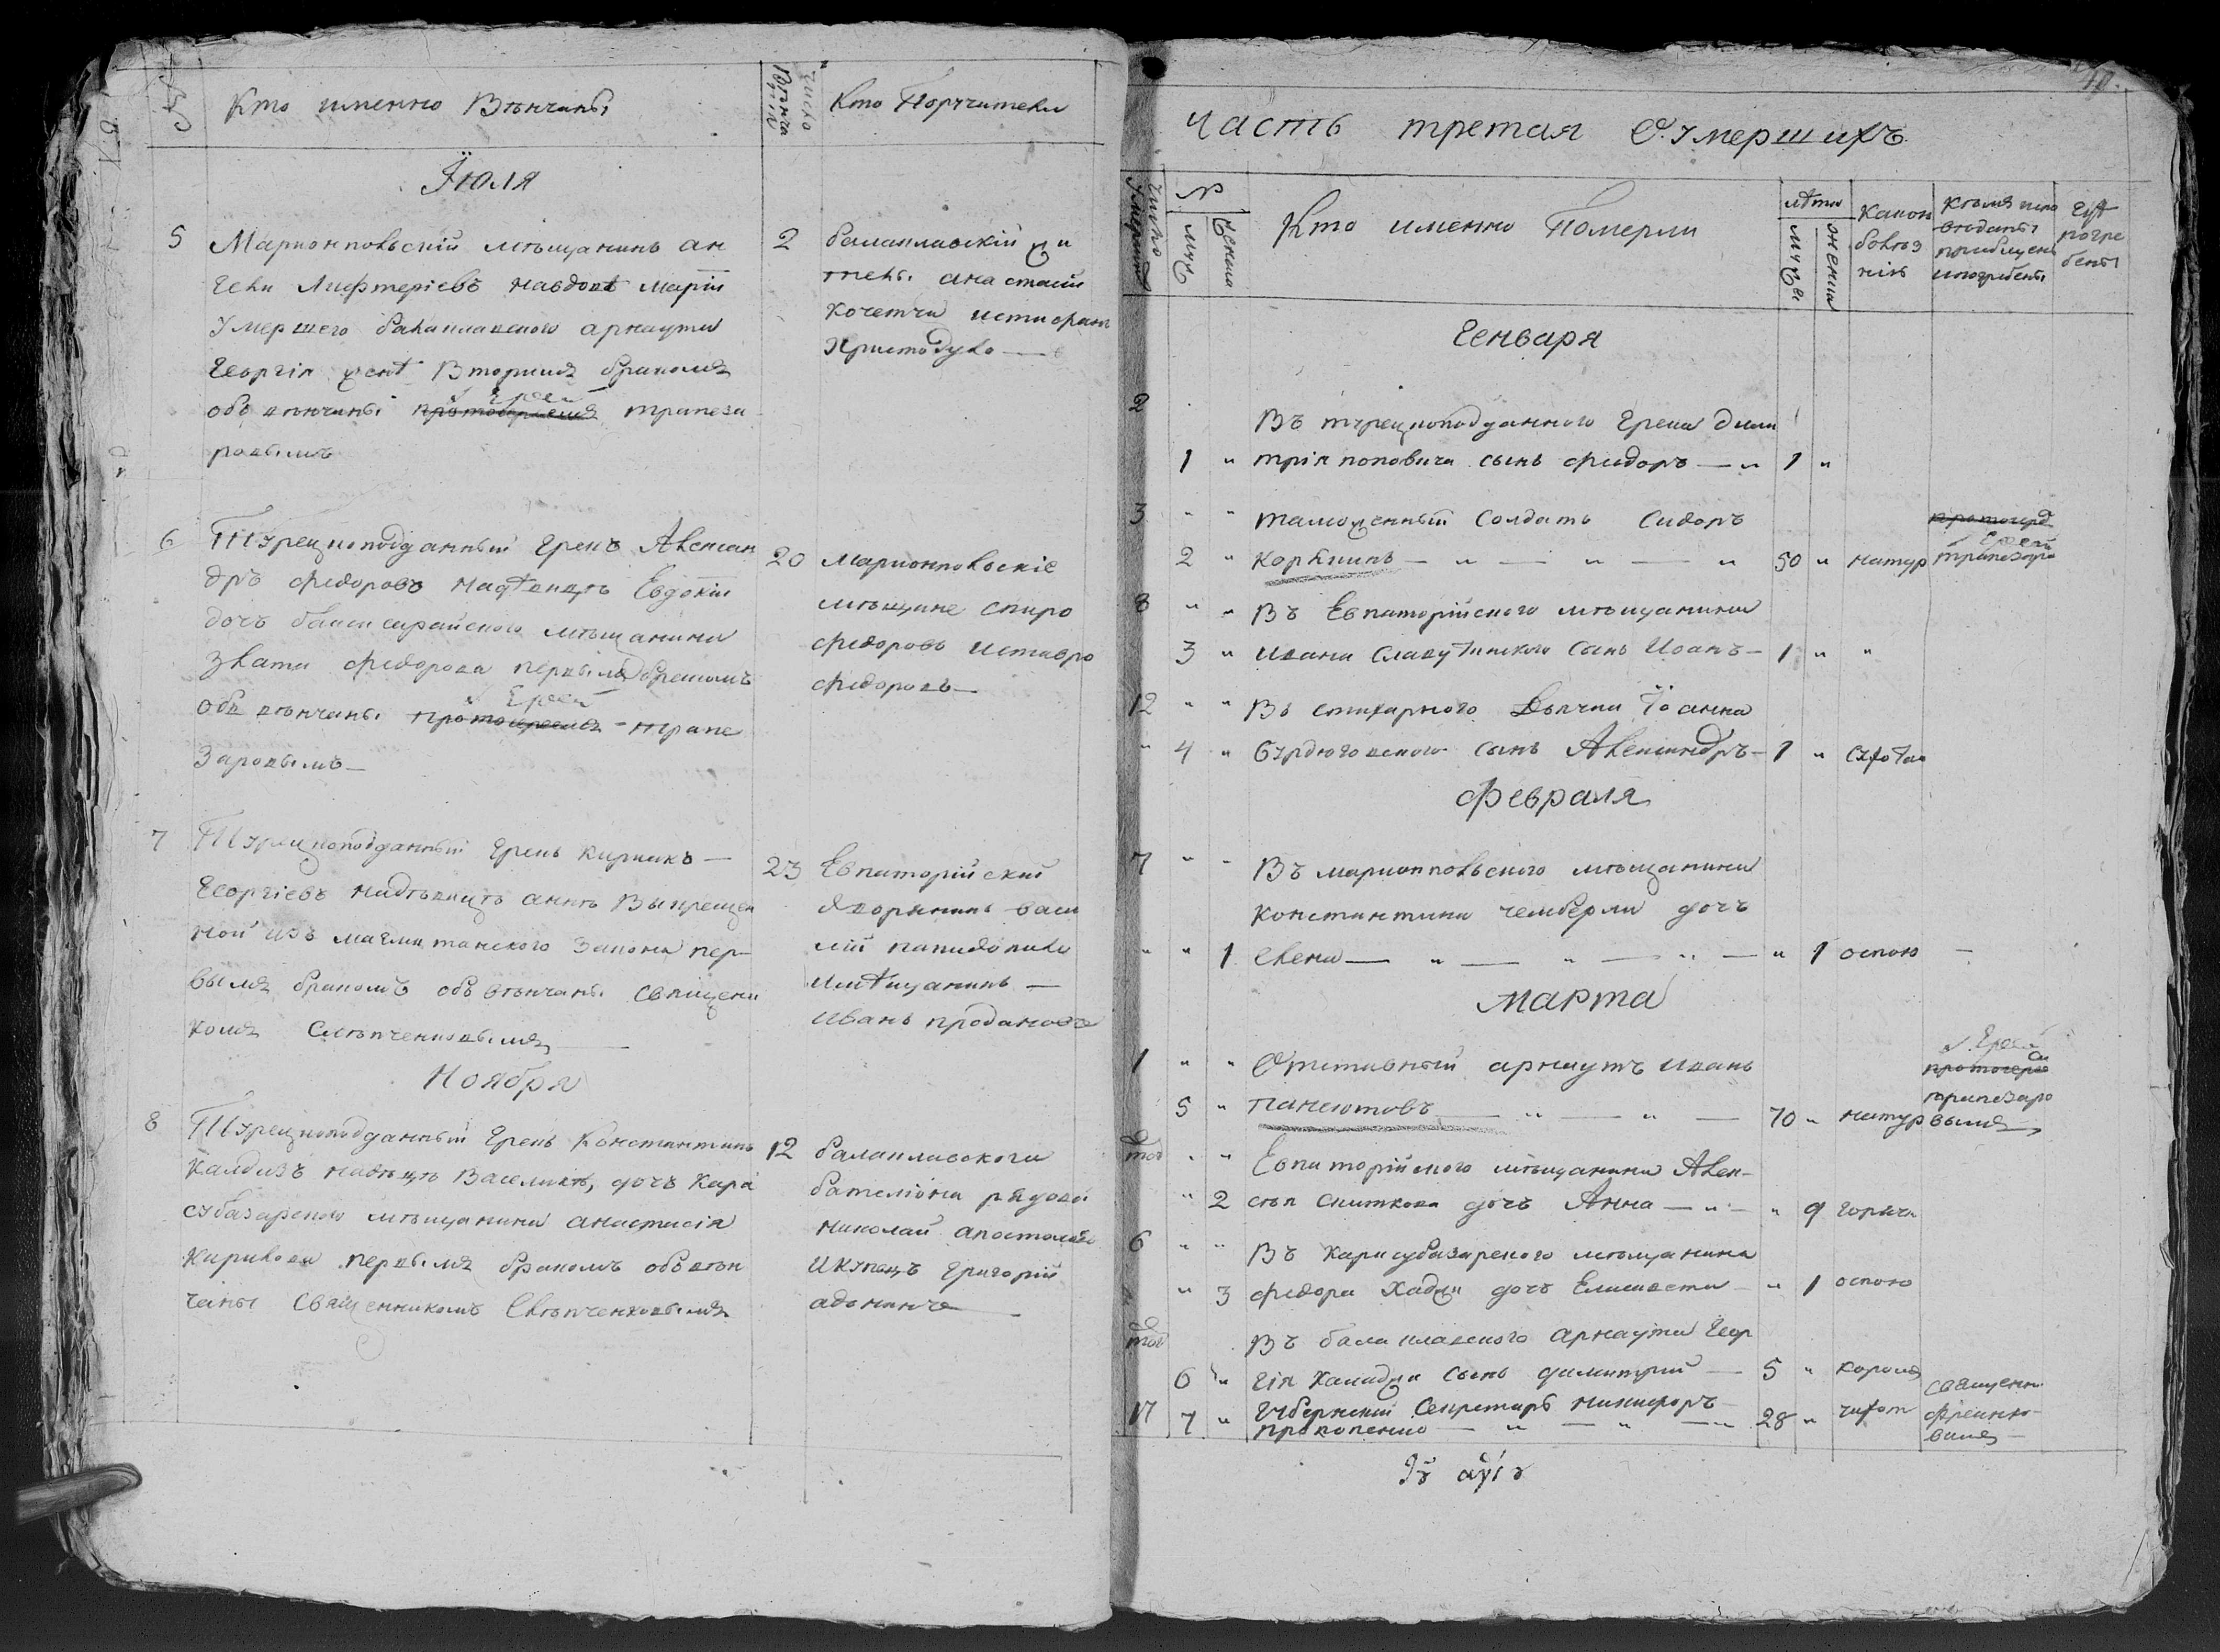 Кто именно Вѣнчаны
число Вѣнча
Кто Поручители
Іюля
5 Мариопольскій мѣщанинъ ан
гели Лифтеріевъ навдовѣ Маріи
умершего балаклавского арнаута
Георгія женѣ Вторимъ бракомъ
обвѣнчаны протоіереемъ Іереи трапеза
ровымъ
2 балаклавскій жи
тель анастасій
кочетчи истифанъ
Христодуло
6 Турецкоподданный грекъ Алексан
дръ федоровъ надѣвицѣ Евдокіи
дочъ бахчисарайского мѣщанина
Злати федорова первымъ бракомъ
обвѣнчаны протоіереемъ Іереи трапе
заровымъ
20 Мариопольскіе
мѣщане спиро
федоровъ иставро
федоровъ
7 Турецкоподданный грекъ кириакъ
Георгіевъ надѣвицѣ аннѣ Выкрещен
ной изъ магметанского закона пер-
вымъ бракомъ обвѣнчаны священи
комъ Слѣпченковымъ
23 Евпаторійскій
дворянинъ васи
лій пападопило
имѣщанинъ
иванъ продановъ
Ноября
8 Турецкоподданный грекъ Константинъ
надѣвцѣ Василикѣ, дочъ Кара
субазарского мѣщанина анастасія
Кирикова первымъ бракомъ обвѣн
чаны Священникомъ Слѣпченковымъ
12 балаклавского
баталіона рядовой
николай апостоловъ
Икупецъ григорій
40.
Часть третая О Умершихъ
число умершихъ
№
муж
женска
Кто именно Померли
лѣта
муже
женска
Какою
болѣз
нію
Кѣмъ испо
ведани
приобщены
ипогребены
Гдѣ
погре
бены
Генваря
2
Въ турецкоподданного Грека дими
1 " трія поповича сынъ федоръ — " 1 "
3 " " таможенный Солдатъ Сидоръ
протоіерей
2 " Корѣнинъ — " — " — " 50 " натур Іереи трапезаро
8 " " Въ Евпаторійского мѣщанина
3 " ивана Славутинского сынъ Иванъ — 1 " "
12 " " Въ стихарного Дьячка Іоанна
" 4 " бурдюговского сынъ Александръ — 1 " сухотою
Февраля
7 " " Въ мариопольского мѣщанина
константина чемберли дочъ
" " 1 елена — " — " — " — " 1 оспою —
Марта
1 " " Отставный арнаутъ иванъ
Іереи
протоіере
5 " панаютовъ — " — " — 70 " натур
трапезаро
вымъ
тод " " Евпаторійского мѣщанина Алек-
" 2 сѣя Сниткова дочъ Анна — " — " 9 горяча
6 " " Въ карасубазарского мѣщанина
" 3 федора Хаджи дочъ Елисавета — " 1 оспою
тод Въ балаклавского арнаута Геор
6 " гія Каладжи сынъ димитрий — 5 " корою
17 7 " Губернскій Секретарь никифоръ
прокопенко — " — " — " 28 " чахот
священи